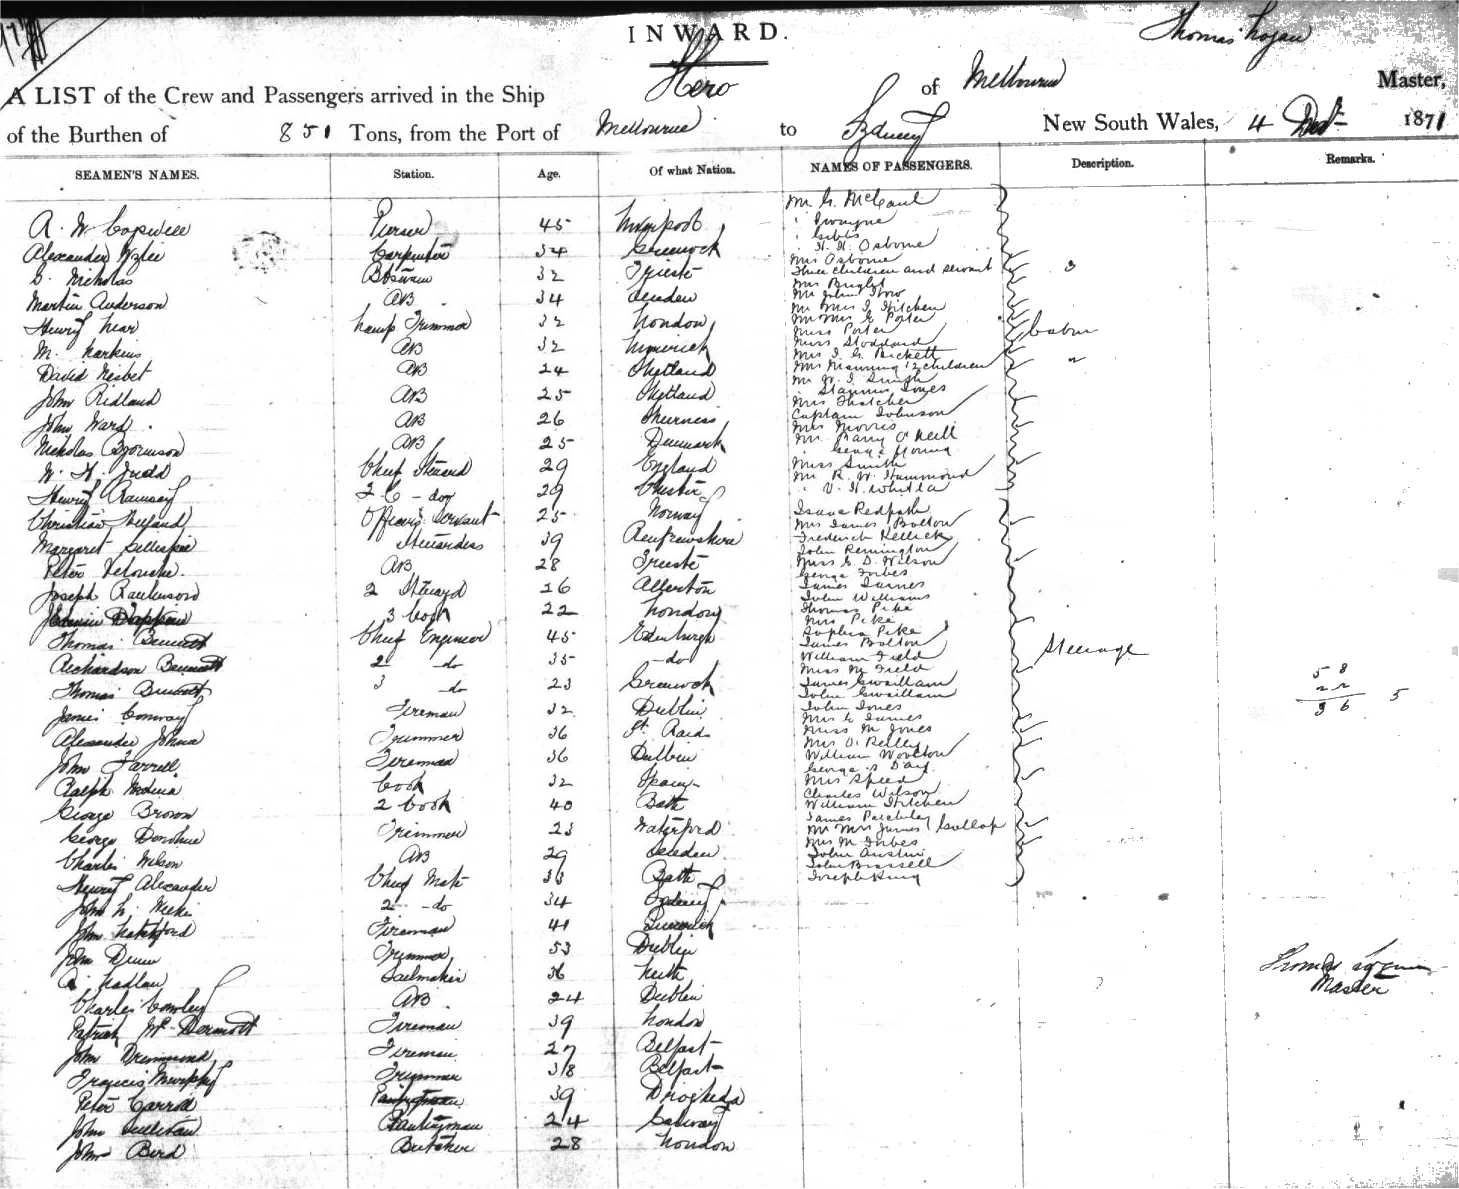 INWARD.
Thomas Logan
A LIST of the Crew and Passengers arrived in the Ship Hero of Melbourne Master,
of the Burthen of 851 Tons, from the Port of Melbourne to Sydney New South Wales, 4 1871
SEAMEN'S NAMES. Station. Age. Of what Nation. NAMES OF PASSENGERS. Description. Remarks.
A. W. 45 Liverpool
Alexander Carpenter 34 Greenock
Nicholas 32 Trieste
Martin Anderson AB 34
Henry Lamp Trimmer 32 London
M. Harkins AB 32 Limerick
David Nesbet AB 24 Shetland
John Ridland AB 25 Shetland
John Ward AB 26
Nicholas AB 25 Denmark
W. H. Judd Chief Steward 29 England
Henry Ramsay 2 C - do 29 Chester
Christian Officers Servant 25 Norway
Margaret Gillespie Stewardess 39 Renfrewshire
Peter AB 28 Trieste
Joseph Rawlinson 2 Steward 26
3 Cook 22 London
Thomas Bennett Chief Engineer 45 Edinburgh
Richardson Bennett 2 do 35 do
Thomas Bennett 3 do 23 Greenock
James Conway Fireman 32 Dublin
Alexander Trimmer 36 St
John Farrell Fireman 36 Dublin
Ralph Medina Cook 32 Spain
George Brown 2 Cook 40 Bath
George Donohue Trimmer 23 Waterford
Charles Nelson AB 29
Henry Alexander Chief Mate 33 Bath
John L. 2 - do 34 Sydney
John Fireman 41 Limerick
John Dunn Trimmer 53 Dublin
Sailmaker 36 Leith
Charles AB 24 Dublin
Patrick McDermott Fireman 39 London
John Drummond Fireman 27 Belfast
Francis Murphy Trimmer 38 Belfast
Peter Carroll 39 Drogheda
John Sullivan Pantryman 24 Galway
John Bird Butcher 28 London
Mr G. McCaul
Gibbs
H. H. Osborne
Mrs Osborne
Three children and servant 3
Mrs Bright
Mr John
Mr Mrs J. Kitchen
Mr Mrs G Porter
Miss Porter Cabin
Miss Stoddard
Mrs J. G. Pickett
Mrs Manning 2 children 2
Mr W. J. Smith
Jones
Mrs Thatcher
Captain Johnson
Mrs Morris
Mr Barry O'Neill
George Young
Miss Smith
Mr R. W. Hammond
V. H. Whitla
Isaac Redpath
Mrs James Bolton
Frederick Kellick
John Remington
Miss E. D. Wilson
George Forbes
James James
John Williams
Thomas Pike
Mrs Pike
Sophia Pike
James Bolton
William Field Steerage
Miss M Field
James Gwaillam
John Gwaillam
John Jones
Mrs E James
Miss M Jones
Mrs O'Reilly
William Woolton
George Day
Mrs Speed
Charles Wilson
William Kitchen
James
Mr Mrs James Gollop
Mrs M Forbes
John Austin
John Brassell
Joseph King
58
22
36 5
Thomas Logan
Master